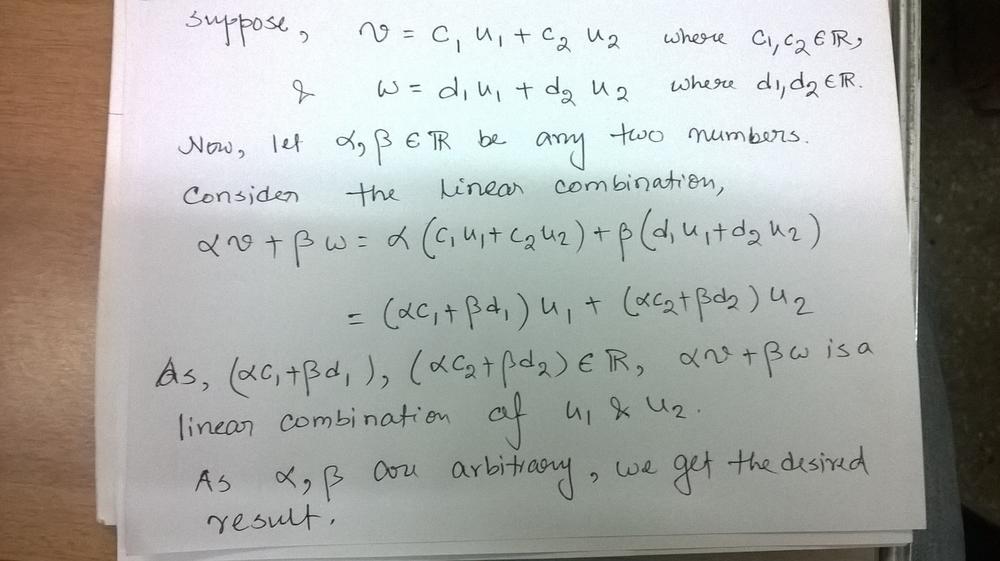 suppose, v = c₁ u₁ + c₂ u₂ where c₁, c₂ ∈ ℝ,
& w = d₁ u₁ + d₂ u₂ where d₁, d₂ ∈ ℝ.
Now, let α, β ∈ ℝ be any two numbers.
Consider the linear combination,
αv + βw = α (c₁ u₁ + c₂ u₂) + β (d₁ u₁ + d₂ u₂)
= (αc₁ + βd₁) u₁ + (αc₂ + βd₂) u₂
As, (αc₁ + βd₁), (αc₂ + βd₂) ∈ ℝ, αv + βw is a
linear combination of u₁ & u₂.
As α, β are arbitrary, we get the desired
result.